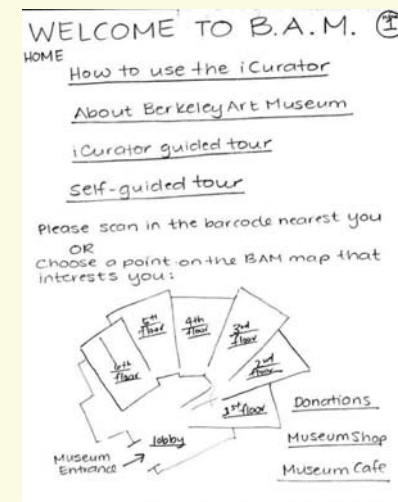 WELCOME TO B.A.M. 1
HOME
How to use the iCurator
About Berkeley Art Museum
iCurator guided tour
self-guided tour
Please scan in the barcode nearest you
OR
Choose a point on the BAM map that
interests you:
6th
floor
5th
floor
4th
floor
3rd
floor
2nd
floor
1st floor
lobby
Museum
Entrance
Donations
Museum Shop
Museum Cafe